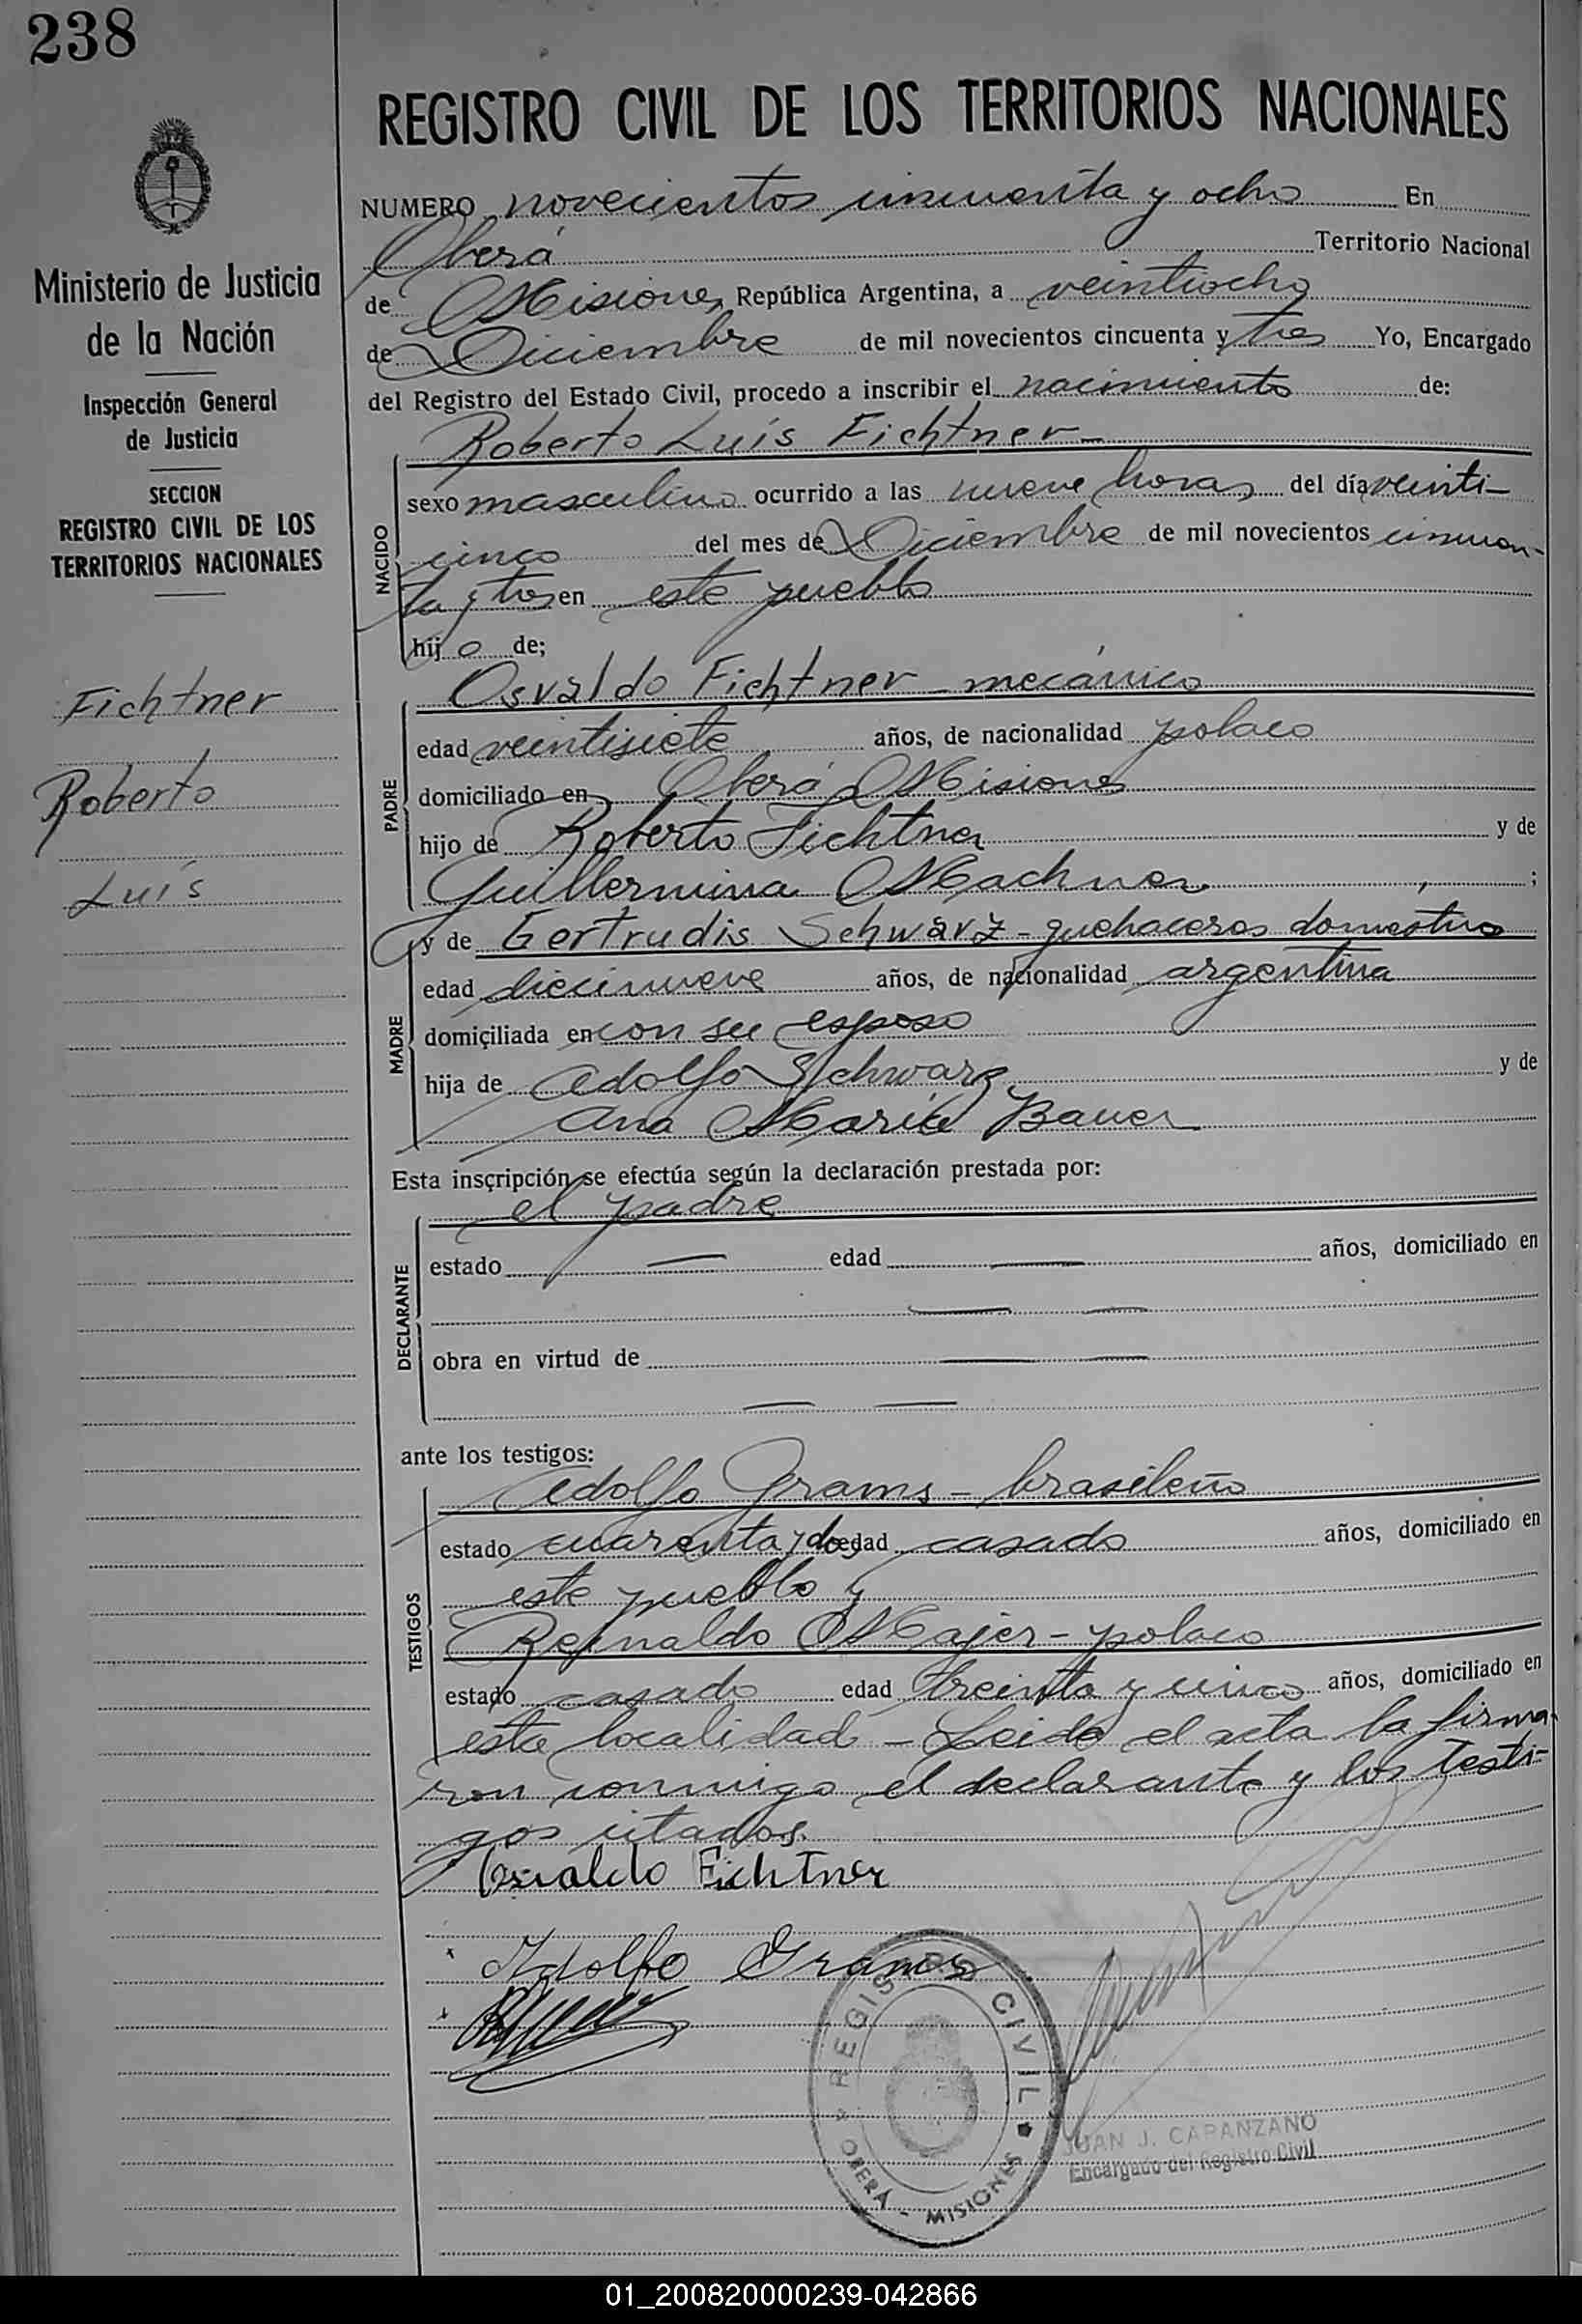 238
REGISTRO CIVIL DE LOS TERRITORIOS NACIONALES
NUMERO novecientos cincuenta y ocho En
Oberá Territorio Nacional
de Misiones República Argentina, a veintiocho
de Diciembre de mil novecientos cincuenta y tres Yo, Encargado
del Registro del Estado Civil, procedo a inscribir el nacimiento de:
Roberto Luís Fichtner
sexo masculino ocurrido a las nueve horas del día veinti-
cinco del mes de Diciembre de mil novecientos cincuen-
ta y tres en este pueblo
hijo de;
NACIDO
Osvaldo Fichtner - mecánico
edad veintisiete años, de nacionalidad polaco
domiciliado en Oberá Misiones
hijo de Roberto Fichtner y de
Guillermina Machner ;
PADRE
y de Gertrudis Schwarz - quehaceres domesticos
edad diecinueve años, de nacionalidad argentina
domiciliada en con su esposo
hija de Adolfo Schwarz y de
Ana María Bauer
MADRE
Esta inscripción se efectúa según la declaración prestada por:
el padre
estado — edad — años, domiciliado en
— —
obra en virtud de — —
— —
DECLARANTE
ante los testigos:
Adolfo Grams - brasileño
estado cuarenta y dos edad casado años, domiciliado en
este pueblo y
Reinaldo Majer - polaco
estado casado edad treinta y cinco años, domiciliado en
esta localidad - Leida el acta la firma-
ron conmigo el declarante y los testi-
gos citados.
TESTIGOS
Osvaldo Fichtner
Adolfo Grams
REGISTRO CIVIL
OBERÁ - MISIONES
JUAN J. CAPANZANO
Encargado del Registro Civil
Ministerio de Justicia
de la Nación
Inspección General
de Justicia
SECCION
REGISTRO CIVIL DE LOS
TERRITORIOS NACIONALES
Fichtner
Roberto
Luís
01_200820000239-042866